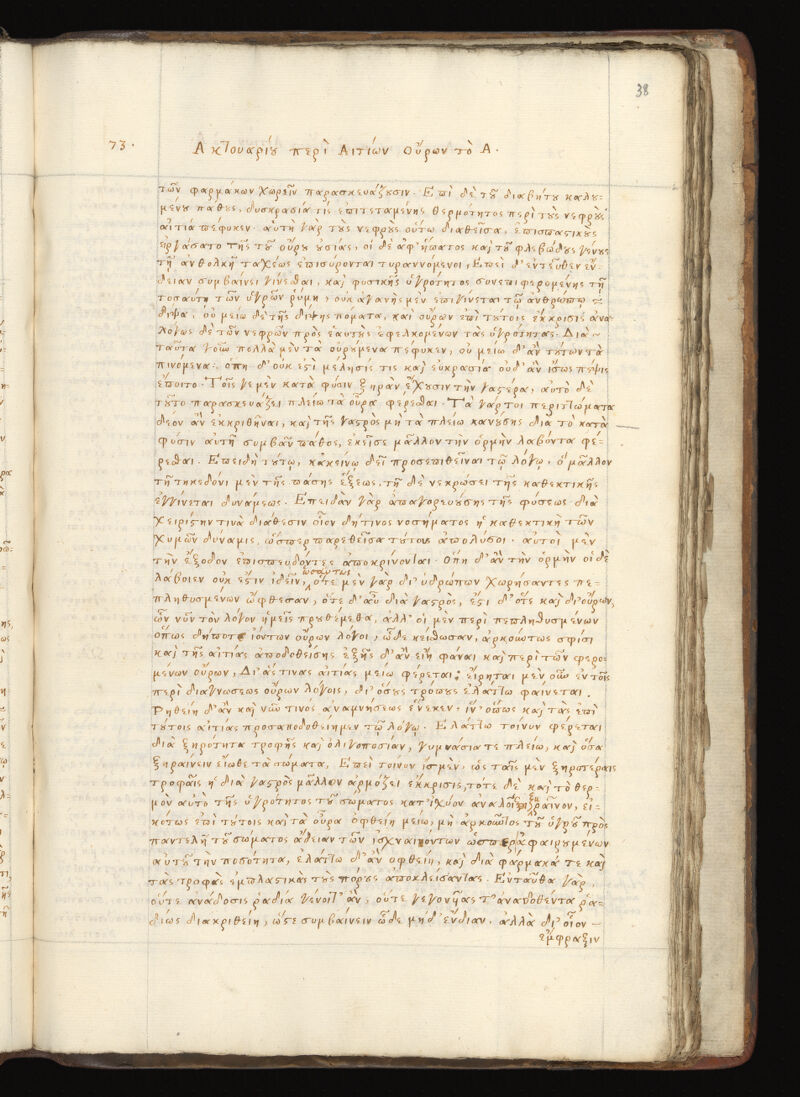 38
73.
Ακτουαρίου περὶ Αιτιών Ούρων τὸ Α.
τῶν φαρμάκων χωρεῖν παρασκευάζουσιν. Επὶ δὲ τοῦ διαβήτου καλου-
μένου πάθους, δυσκρασία τίς ἐπιτεταμένης θερμότητος περὶ τοὺς νεφροὺς
αἰτία πέφυκεν. αὕτη γὰρ τοὺς νεφροὺς οὕτω διαθεῖσα, ἐπισπαστικοὺς
εἰργάσατο τῆς τοῦ οὔρου οὐσίας, οἱ δὲ ἀφ' ἥπατος καὶ τοῦ φλεβώδους γένους
τῇ ἀνθολκῇ ταχέως ἐπισύρονται τυραννόμενοι, Επεὶ δ' ἐντεῦθεν ἔν-
δειαν συμβαίνει γίνεσθαι, καὶ φυσικῆς ὑγρότητος συνεπιφερομένης τῇ
τοσαύτῃ τῶν ὑγρῶν ῥύμῃ, οὐκ ἀγανὴς μὲν ἐπιγίνεται τῷ ἀνθρώπῳ
δίψα, οὐ μείω δὲ τῆς δίψης πόματα, καὶ οὔρων ἐπὶ τούτοις ἔκκρισις ἀνα-
λόγως δὲ τῶν νεφρῶν πρὸς ἑαυτοὺς ἐφελκομένων τὰς ὑγρότητας. Διὰ
ταῦτα γοῦν πολλὰ μὲν τὰ οὐρούμενα πέφυκεν, οὐ μείω δ' ἂν τούτων τὰ
πινόμενα. ὅπη δ' οὐκ ἔστι μέλησίς τις καὶ εὐκρασία οὐδ' ἂν ἴσως πέψις
ἕποιτο. Τοῖς γε μὲν κατὰ φύσιν ξηρὰν ἔχουσιν τὴν γαστέρα, αὐτὸ δὲ
τοῦτο παρασκευάζει πλείω τὰ οὖρα φέρεσθαι. Τὰ γάρ τοι περιττώματα
δέον ἂν ἐκκριθῆναι, καὶ τῆς γαστρὸς μὴ τὰ πλείω κανούσης διὰ τὸ κατὰ
φύσιν αὐτῇ συμβὰν πάθος, ἐκεῖσε μᾶλλον τὴν ὁρμὴν λαβόντα φέ-
ρεσθαι. Επειδὴ τούτῳ, κἀκείνῳ δεῖ προσεπιθεῖναι τῷ λόγῳ, ὃ μᾶλλον
τῇ τηκεδόνι μὲν τῆς πάσης ἕξεως, τῇ δὲ νεκρώσει τῆς καθεκτικῆς
ἐγγίνεται δυνάμεως. Επειδὰν γὰρ ἀπαγορευούσης τῆς φύσεως διὰ
χειρίστην τινὰ διάθεσιν οἷον δή τινος νοσήματος ἡ καθεκτικὴ τῶν
χυμῶν δύναμις, ὥσπερ παρεθεῖσα τούτους ἀπολύσοι. αὐτοὶ μὲν
τὴν ἔξοδον ἐπισπεύδοντες ἀποκρίνονται. Οπη δ' ἂν τὴν ὁρμὴν οἵδε
λάβοιεν οὐκ ἔστιν ἰδεῖν, ὡσαύτως ὁτὲ μὲν γὰρ δι' ὑδρώπων χωρήσαντες πε-
πληθυσμένων ὤφθησαν, ὁτὲ δ' αὖ διὰ γαστρὸς, ἔστι δ' ὅτε καὶ δι' οὔρων,
ὧν νῦν τὸν λόγον ἡμεῖς προὐθέμεθα, ἀλλ' οἱ μὲν περὶ πεπληθυσμένων
ὅπως δήποτε ἰόντων οὔρων λόγοι, ὧδε κείσθωσαν, ἀρκούντως σφίσι
καὶ τῆς αἰτίας ἀποδοθείσης ἑξῆς δ' ἂν εἴη φάναι καὶ περὶ τῶν φερο-
μένων οὔρων, Δι' ἅς τινας αἰτίας μείω φέρεται; εἴρηται μὲν οὖν ἐν τοῖς
περὶ διαγνώσεως οὔρων λόγοις, δι' ὅσους τρόπους ἐλάττω φαίνεται.
Ρηθείη δ' ἂν καὶ νῦν τινὸς ἀναμνήσεως ἕνεκεν. ἵν' οὕτως καὶ τὰς ἐπὶ
τούτοις αἰτίας προσαποδοθείημεν τῷ λόγῳ. Ελάττω τοίνυν φέρεται
διὰ ξηρότητα τροφῆς καὶ ὀλιγοποσίαν, γυμνάσιά τε πλείω, καὶ ὅσα
ξηραίνειν εἴωθε τὰ σώματα, Επεὶ τοίνυν ἴσμεν, ὡς ταῖς μὲν ξηροτέραις
τροφαῖς ἡ διὰ γαστρὸς μᾶλλον ἁρμόζει ἔκκρισις, τότε δὲ καὶ τὸ θερ-
μὸν αὐτὸ τῆς ὑγρότητος τοῦ σώματος κατ' ἰχύον ἀναλοῖ ξηραῖνον, εἰ-
κότως ἐπὶ τούτοις καὶ τὰ οὖρα ὀφθείη μείω, μὴ ἀρκοῦντος τοῦ ὑγροῦ πρὸς
παντελῆ τοῦ σώματος ἄδειαν τῶν ἰσχναινόντων ὥσπερ ἀφαιρουμένων
αὐτοῦ τὴν ποσότητα, ἐλάττω δ' ἂν ὀφθείη, καὶ διὰ φάρμακά τε καὶ
τὰς τροφὰς ἐμπλαστικὰς τοὺς πόρους ἀποκλεισάντας. Ενταῦθα γὰρ,
οὔτε ἀνάδοσις ῥαδία γένοιτ' ἂν, οὔτε γεγονυίας τ' ἀναδοθέντα ῥα-
δίως διακριθείη, ὥστε συμβαίνειν ὧδε μὴ δ' ἔνδειαν. ἀλλὰ δι' οἷον
ἔμφραξιν